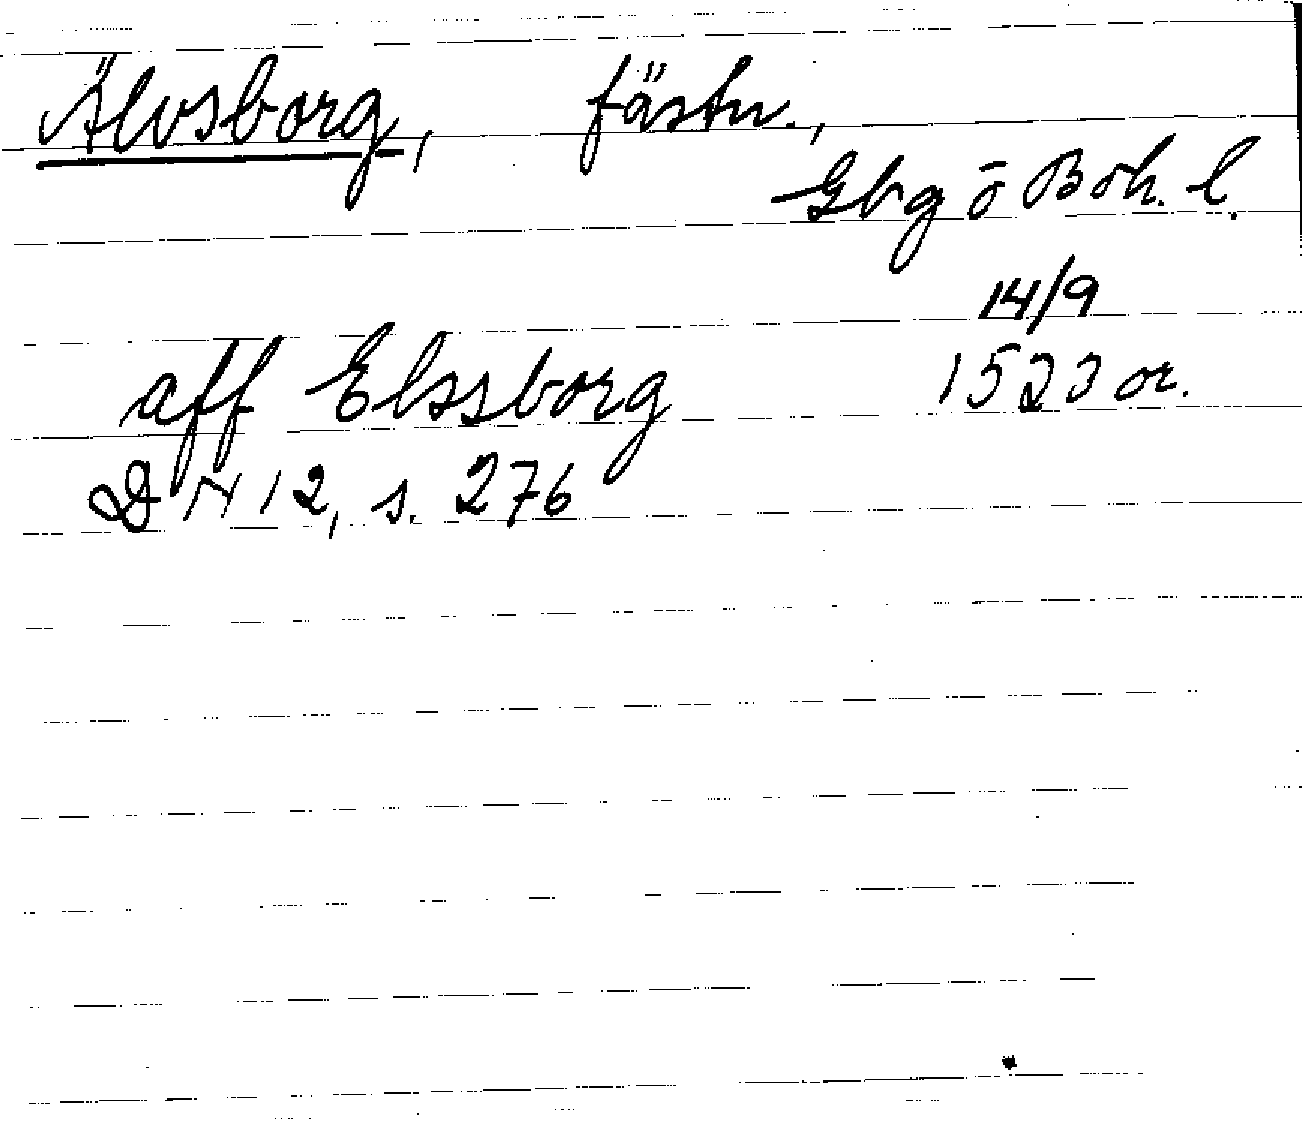 Älvsborg, fästn.,
Gbg ō Boh. l.
14/9
aff Elssborg 1523 or.
DN 12, s. 276